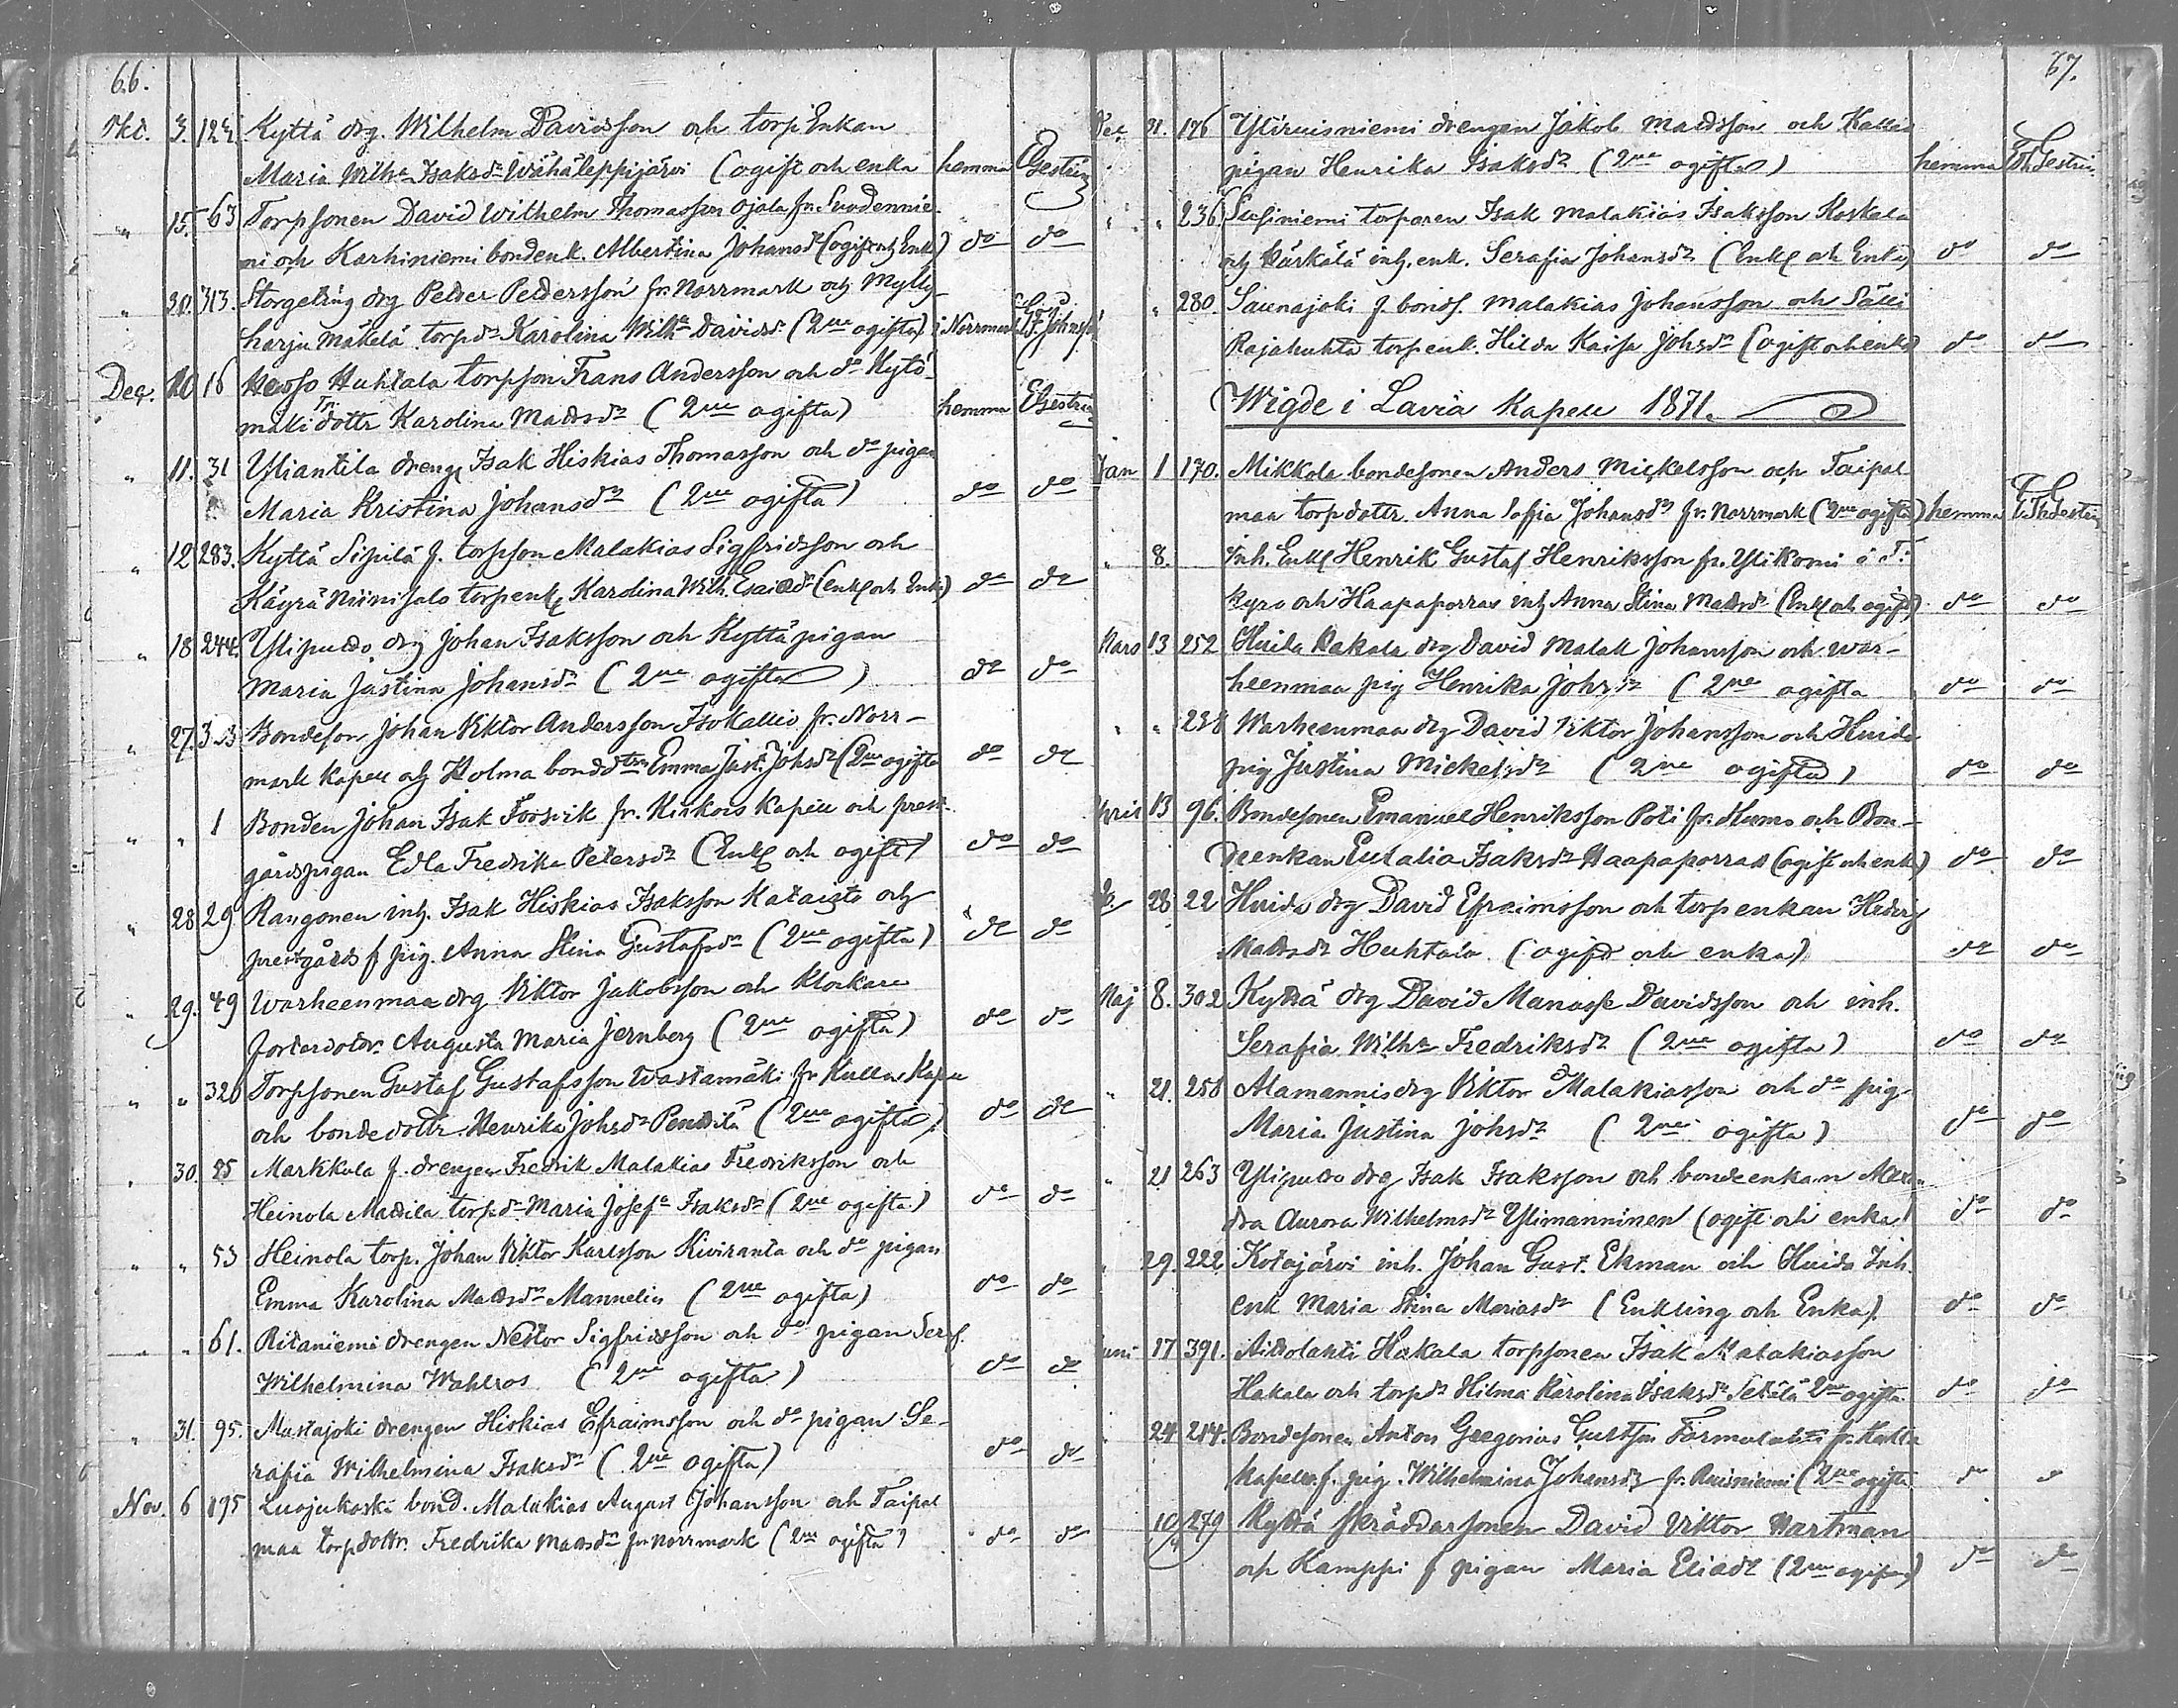 66.
Okt. 3. 124 Kyttä drg. Wilhelm Davidsson och torp Enkan
Maria Wilh:a Isaksdr Wähäleppijärvi (ogift och enka hemma Gestrin
" 15. 63 Torpsonen David Wilhelm Thomasson Ojala fr. Suodennie-
mi och Karhiniemi bondenk. Albertina Johansdr (ogift och Enka) do do
" 30. 313. Storgeting drg Petter Pettersson fr. Norrmark och Mylly-
harju Mäkelä torpdr Karolina Wilh:a Davidsdr (2ne ogifta) i Norrmark
Dec. 10 16 Huhtala torpson Frans Andersson och do Kytö-
mäki dottr Karolina Mattsdr (2ne ogifta) hemma Gestrin
" 11. 31 Yliantila dreng Isak Hiskias Thomasson och do pigan
Maria Kristina Johansdr (2ne ogifta) do do
" 12 283. Kyttä Sipilä f. torpson Malakias Sigfridsson och
Käyrä Niinisalo torpenk Karolina Wilh. Esaiædr (Enkl och Enka) do do
" 18 244. Ylipuldo drg Johan Isaksson och Kyttä pigan
Maria Justina Johansdr (2ne ogifta) do do
" 27. Bondeson Johan Viktor Andersson Isokallio fr. Norr-
mark kapell och Holma bonddtrn Emma Just. Johsdr (2ne ogifta do do
" " 1 Bonden Johan Isak Forsvik fr. Kiikois kapell och prest-
gårdspigan Edla Fredrika Petersdr (Enkl och ogift) do do
" 28 29 Rangonen inh. Isak Hiskias Isaksson Kataisto och
prestgårds f pig. Anna Stina Gustafsdr (2ne ogifta) do do
" 29. 49 Warheenmaa drg Viktor Jakobsson och klockare
fosterdotdr. Augusta Maria Jernberg (2ne ogifta) do do
" " 320 Torpsonen Gustaf Gustafsson Wastamäki fr Kullaa Kapell
och bondedottr. Henrika Johsdr Penttilä (2ne ogifta) do do
" 30. 25 Markkula f. drengen Fredrik Malakias Fredriksson och
Heinola Mattila torpdr Maria Josefa Isaksdr (2ne ogifta) do do
" " 53 Heinola torp. Johan Viktor Karlsson Kiviranta och do pigan
Emma Karolina Mattsdr Mannelin (2ne ogifta) do do
" " 61. Ritaniemi drengen Nestor Sigfridsson och do pigan Seraf.
Wilhelmina Wahlros (2ne ogifta) do do
" 31. 95. Mustajoki drengen Hiskias Efraimsson och do pigan Se-
rafia Wilhelmina Isaksdr (2ne ogifta) do do
Nov. 6 195 Luojukoski bond. Malakias August Johansson och Taipal
maa torpdottr. Fredrika Mattsdr fr Norrmark (2ne ogifta) do do
67.
Dec 31. 176 Yliruisniemi drengen Jakob Mattsson och Kallio
pigan Henrika Isaksdr (2ne ogifta) hemma Gestrin
" " 236. Susiniemi torparen Isak Malakias Isaksson Koskala
och Kärkälä inh. enk. Serafia Johansdr (Enkl och Enka) do do
" 280. Saunajoki f. bonds. Malakias Johansson och Sälli
Rajahuhta torpenk. Hilda Kaisa Johsdr (ogift och enka) do do
Wigde i Lavia Kapell 1871.
Jan 1 170. Mikkola bondesonen Anders Mickelsson och Taipal
maa torpdottr. Anna Sofia Johansdr fr. Norrmark (2ne ogifta) hemma Gestrin
" 8. Inh. Enkl Henrik Gustaf Henriksson fr. Ylikomi i T:
Kyro och Haapaporras inh Anna Stina Mattsdr (Enkl och ogift) do do
Mars 13 252 Huida Kakala drg David Malak Johansson och War-
heenmaa pig Henrika Johsdr (2ne ogifta do do
" " 258 Warheenmaa drg David Viktor Johansson och Huida
pig Justina Mickelsdr (2ne ogifta) do do
April 13 96. Bondesonen Emanuel Henriksson Poti fr. Kumo och Bon-
deenkan Eulalia Isaksdr Haapaporras (ogift och enka) do do
28 22 Huida drg David Efraimsson och torpenkan Hedvig
Mattsdr Huhtala (ogift och enka) do do
Maj 8. 302 Kyttä drg David Manasse Davidsson och inh.
Serafia Wilh:a Fredriksdr (2ne ogifta) do do
" 21. 258 Alamannis drg Viktor Malakiasson och do pig
Maria Justina Johsdr (2ne ogifta) do do
" 21 263 Ylipulda drg Isak Isaksson och bondeenkan
Aurora Wilhelmsdr Ylimanninen (ogift och enka) do do
" 29. 222 Kotajärvi inh. Johan Gust. Ekman och Huida Inh.
enk Maria Stina Mariasdr (Enkling och Enka) do do
Juni 17 391. Aittolahti Hakala torpsonen Isak Malakiasson
Hakala och torpdr Hilma Karolina Isaksdr Setälä 2ne ogifta do do
" 24 214. Bondesonen Anton Gregorius Gustsson fr.
kapell o. f. pig. Wilhelmina Johansdr fr. Ruisniemi (2ne ogifta do do
10/4 279 Kyttä skräddarsonen David Viktor Hartman
och Kamppi f pigan Maria Eliadr (2ne ogifta) do do